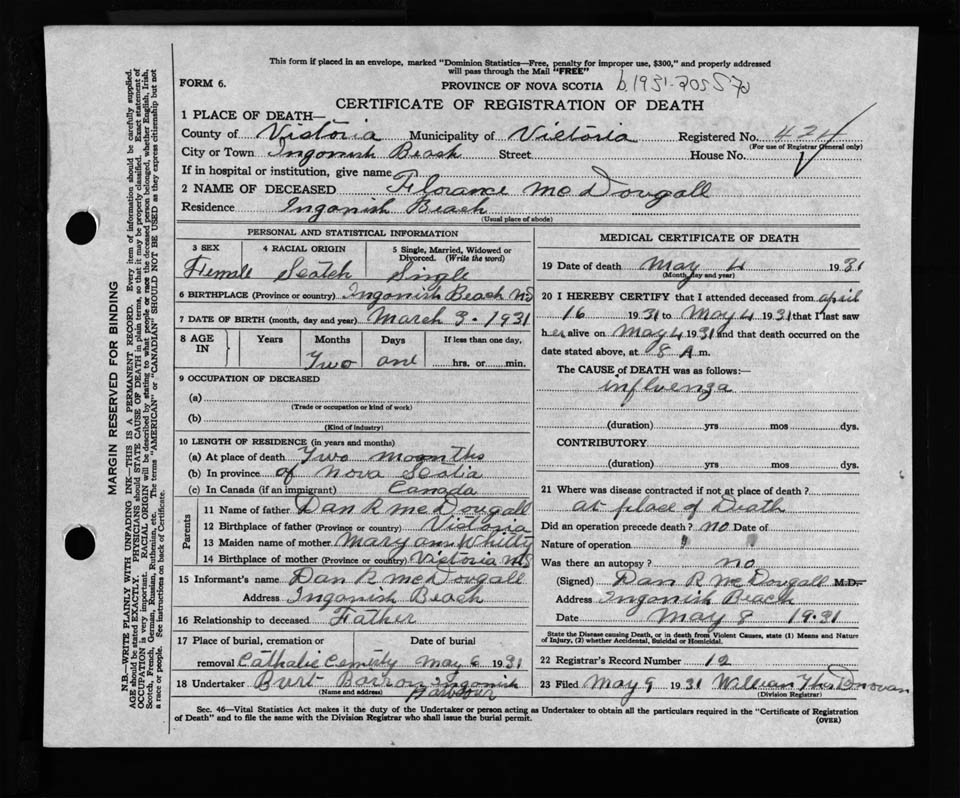 This form if placed in an envelope, marked "Dominion Statistics—Free, penalty for improper use, $300," and properly addressed
will pass through the Mail "FREE"
FORM 6.
PROVINCE OF NOVA SCOTIA
CERTIFICATE OF REGISTRATION OF DEATH
1 PLACE OF DEATH—
County of Victoria Municipality of Victoria Registered No. 424
(For use of Registrar General only)
City or Town Ingonish Beach Street House No.
If in hospital or institution, give name
2 NAME OF DECEASED Florance McDougall
Residence Ingonish Beach
(Usual place of abode)
PERSONAL AND STATISTICAL INFORMATION
3 SEX 4 RACIAL ORIGIN 5 Single, Married, Widowed or
Divorced. (Write the word)
Female Scotch Single
6 BIRTHPLACE (Province or country) Ingonish Beach NS
7 DATE OF BIRTH (month, day and year) March 3 - 1931
8 AGE IN Years Months Days If less than one day,
Two one hrs. or min.
9 OCCUPATION OF DECEASED
(a)
(Trade or occupation or kind of work)
(b)
(Kind of industry)
10 LENGTH OF RESIDENCE (in years and months)
(a) At place of death Two moonths
(b) In province of Nova Scotia
(c) In Canada (if an immigrant) Canada
Parents
11 Name of father Dan R McDougall
12 Birthplace of father (Province or country) Victoria
13 Maiden name of mother Mary Ann Whitty
14 Birthplace of mother (Province or country) Victoria NS
15 Informant's name Dan R McDougall
Address Ingonish Beach
16 Relationship to deceased Father
17 Place of burial, cremation or Date of burial
removal Catholic Cemetry May 6 1931
18 Undertaker Burt Barron Ingonish
(Name and address) Harbour
MEDICAL CERTIFICATE OF DEATH
19 Date of death May 4 1931
(Month, day and year)
20 I HEREBY CERTIFY that I attended deceased from April
16 1931 to May 4 1931 that I last saw
her alive on May 4 1931 and that death occurred on the
date stated above, at 8 A m.
The CAUSE of DEATH was as follows:—
influenza
(duration) yrs mos dys.
CONTRIBUTORY
(duration) yrs mos dys.
21 Where was disease contracted if not at place of death?
at place of Death
Did an operation precede death? no Date of
Nature of operation
Was there an autopsy? no
(Signed) Dan R McDougall M.D.
Address Ingonish Beach
Date May 8 1931
State the Disease causing Death, or in death from Violent Causes, state (1) Means and Nature
of Injury, (2) whether Accidental, Suicidal or Homicidal.
22 Registrar's Record Number 12
23 Filed May 9 1931 William Thos Donovan
(Division Registrar)
Sec. 46—Vital Statistics Act makes it the duty of the Undertaker or person acting as Undertaker to obtain all the particulars required in the "Certificate of Registration
of Death" and to file the same with the Division Registrar who shall issue the burial permit. (OVER)
MARGIN RESERVED FOR BINDING
N.B.—WRITE PLAINLY WITH UNFADING INK—THIS IS A PERMANENT RECORD. Every item of information should be carefully supplied.
AGE should be stated EXACTLY. PHYSICIANS should STATE CAUSE OF DEATH in plain terms, so that it may be properly classified. Exact statement of
OCCUPATION is very important. RACIAL ORIGIN will be described by stating to what people or race the deceased person belonged, whether English, Irish,
Scotch, French, German, Russian, Ruthenian, etc. The terms "AMERICAN" or "CANADIAN" SHOULD NOT BE USED as they express citizenship but not
a race or people. See instructions on back of Certificate.